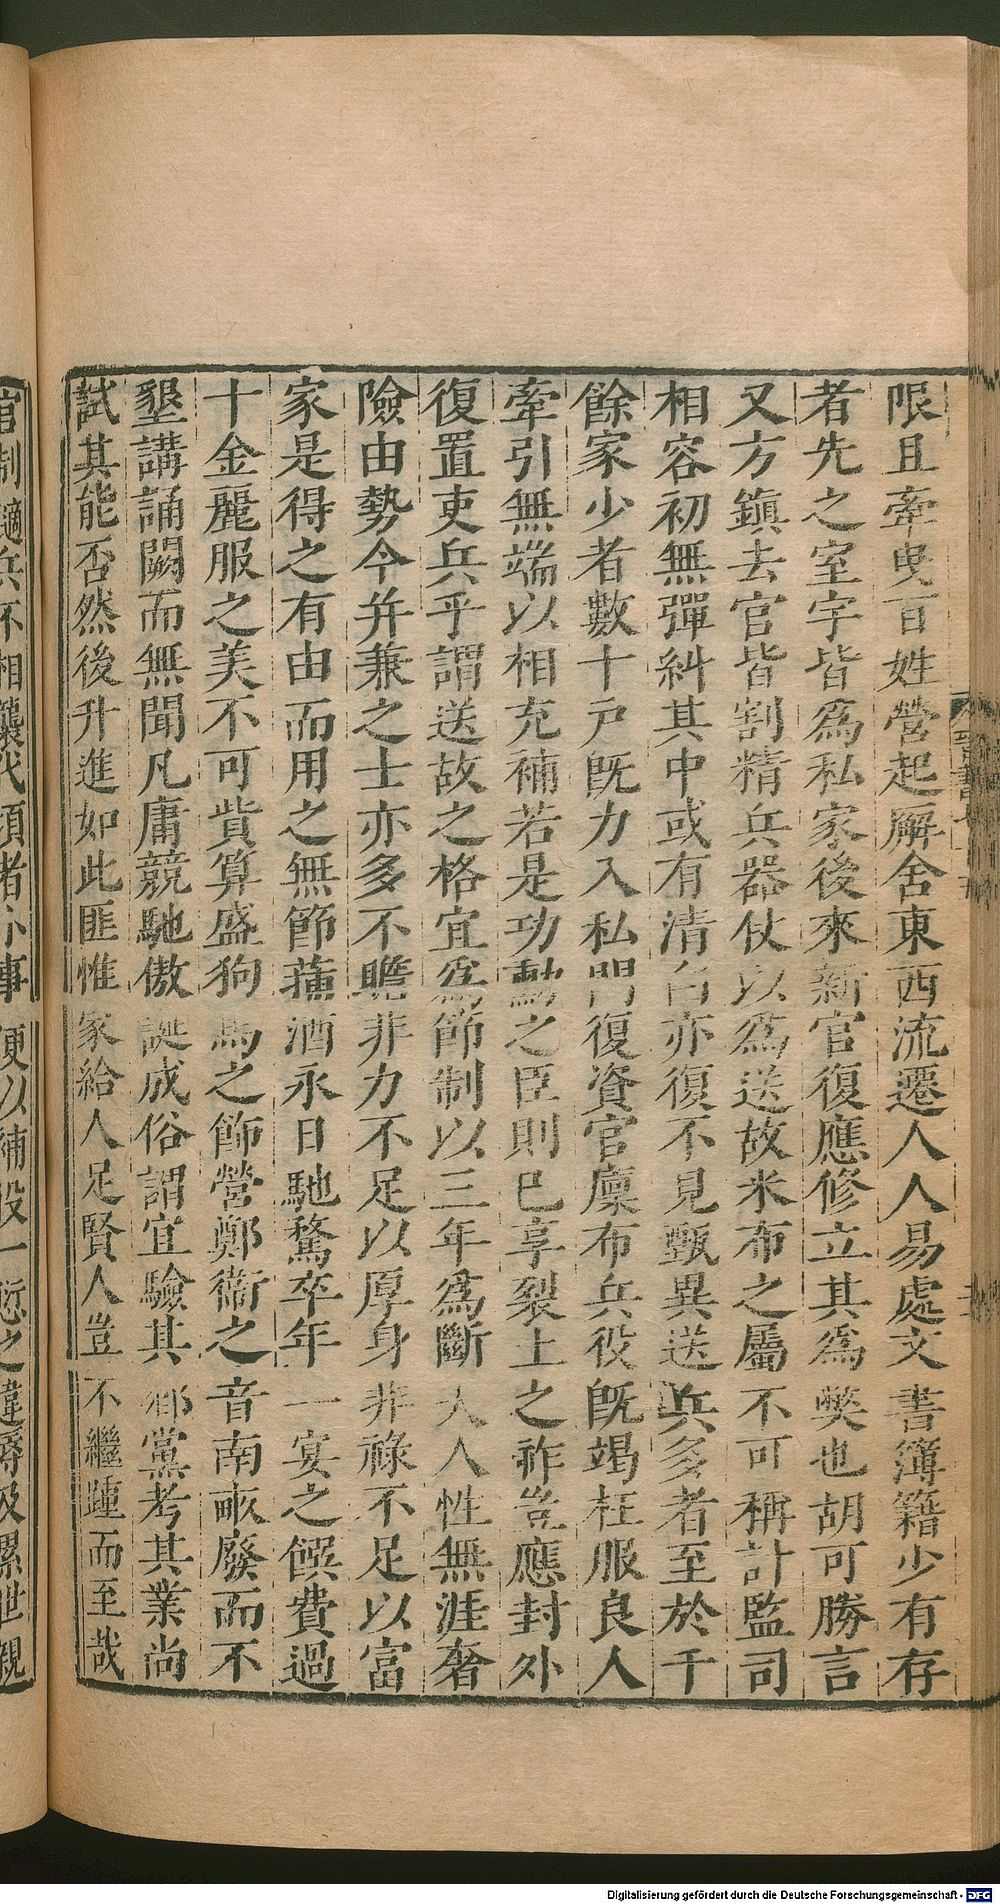 限且牽曳百姓營起廨舍東西流遷人人易處文書簿籍少有存
者先之室宇皆爲私家後來新官復應修立其爲獘也胡可勝言
又方鎭去官皆割精兵器仗以爲送故米布之屬不可稱計監司
相容初無彈糾其中或有清白亦復不見甄異送兵多者至於千
餘家少者數十戶旣力入私門復資官廩布兵役旣竭枉服良人
牽引無端以相充補若是功勳之臣則已享裂土之祚豈應封外
復置吏兵乎謂送故之格宜爲節制以三年爲斷人人性無涯奢
險由勢今并兼之士亦多不贍非力不足以厚身非祿不足以富
家是得之有由而用之無節蒱酒永日馳騖卒年一宴之饌費過
十金麗服之美不可貲算盛狗馬之飾營鄭衞之音南畝廢而不
墾講誦闕而無聞凡庸競馳傲誕成俗謂宜驗其鄉黨考其業尚
試其能否然後升進如此匪惟家給人足賢人豈不繼踵而至哉
官制讁兵不相襲代頃者小事便以補役一愆之違辱及累世親
Digitalisierung gefördert durch die Deutsche Forschungsgemeinschaft - DFG